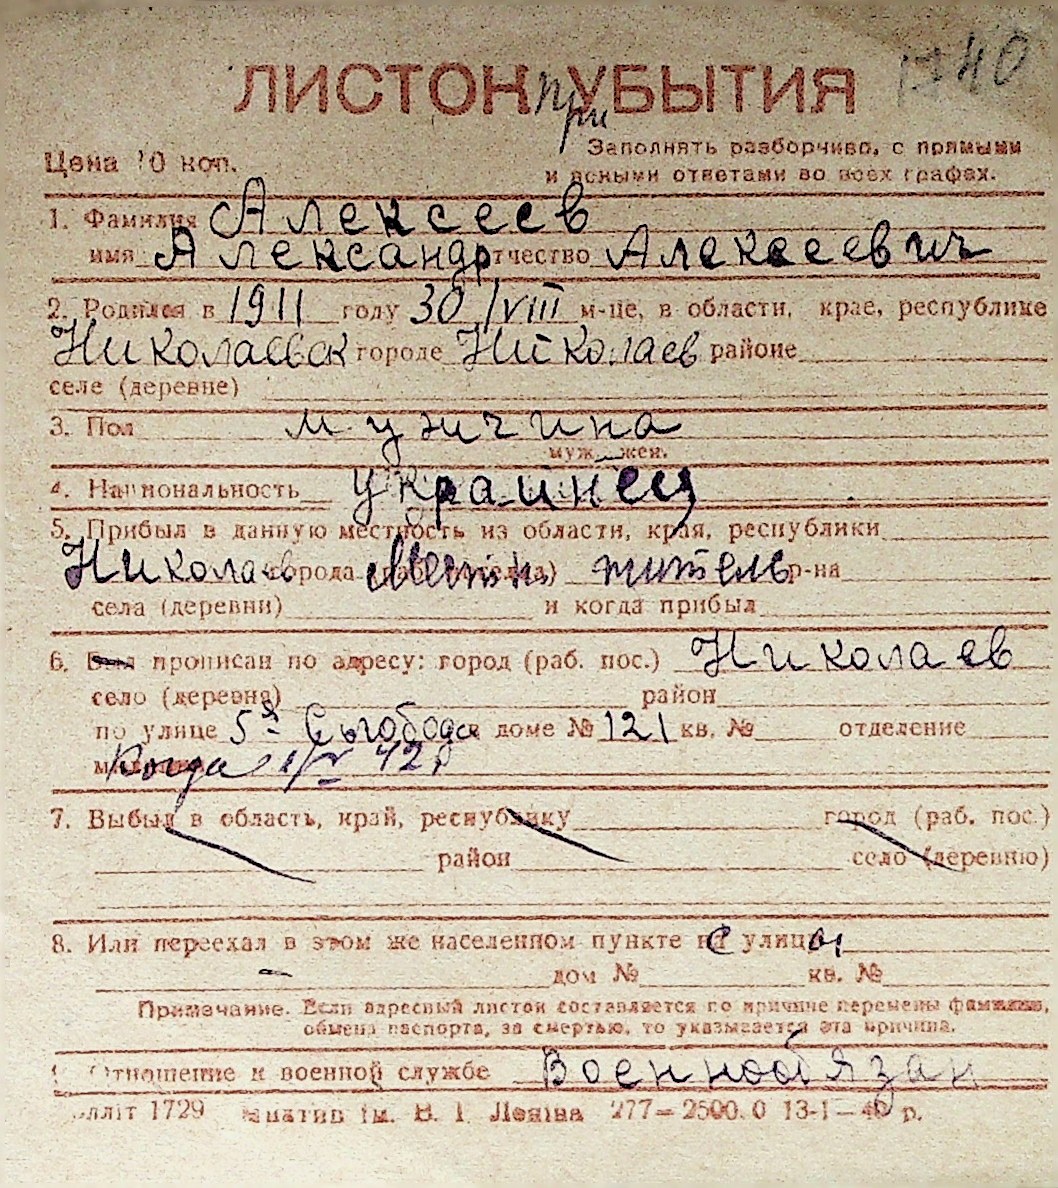 1740
ЛИСТОК при УБЫТИЯ
Цена 10 коп.
Заполнять разборчиво, с прямыми
и ясными ответами во всех графах.
1. Фамилия Алексеев
имя Александр отчество Алексеевич
2. Родился в 1911 году 30/VIII м-це, в области, крае, республике
Николаевск городе Николаев районе
селе (деревне)
3. Пол мужчина
муж., жен.
4. Национальность украинец
5. Прибыл в данную местность из области, края, республики
Николаев города (раб. поселка) Местн. житель р-на
села (деревни) и когда прибыл
6. Был прописан по адресу: город (раб. пос.) Николаев
село (деревня) район
по улице 5я Слободск доме № 121 кв. № отделение
Когда 1/IV 42 г
7. Выбыл в область, край, республику город (раб. пос.)
район село (деревню)
8. Или переехал в этом же населенном пункте с улицы
дом № кв. №
Примечание. Если адресный листок составляется по причине перемены фамилии,
обмена паспорта, за смертью, то указывается эта причина.
9. Отношение к военной службе Военнообязан
лліт 1729 ім. В. І. Леніна 277—2500.0 13-1—40 р.